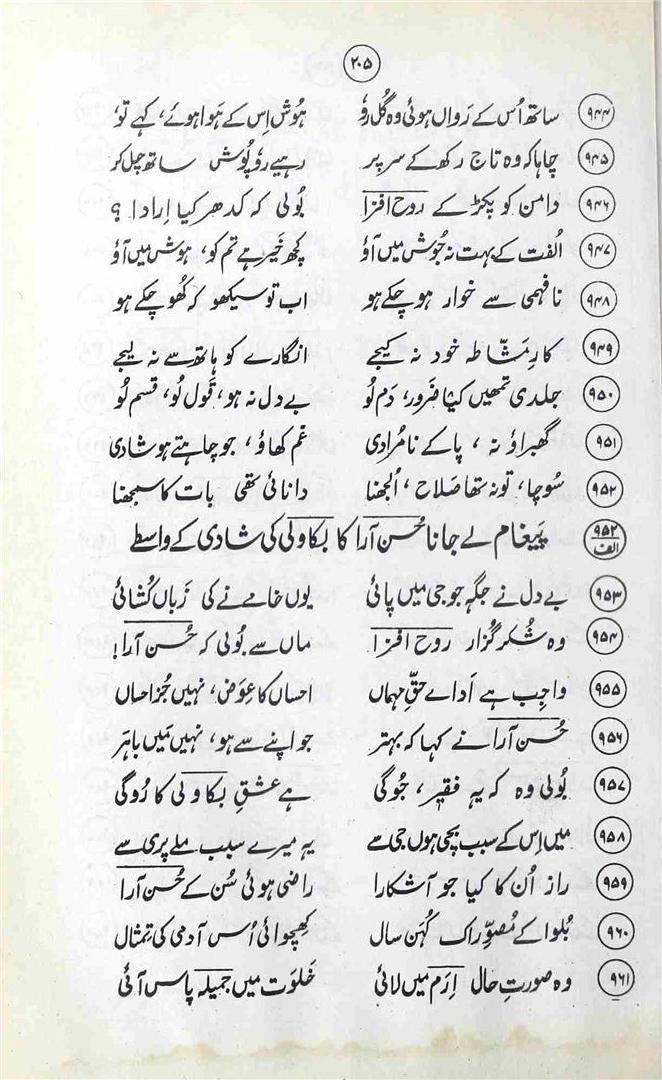 ۲۰۵
۹۴۴ ساتھ اُس کے رَواں ہوئی وہ گُل رٗو ہُوش اِس کے ہَوا ہوئے، کہے تو ٗ
۹۴۵ چاہا کہ وہ تاج رکھ کے سر پر رہیے رٗوپُوش ساتھ چل کر
۹۴۶ دامن کو پکڑ کے روح افزا بُولی کہ کدھر کیا اِرادا ؟
۹۴۷ الفت کے بہت نہ جُوش میں آؤ کچھ خَیر ہے تم کو، ہوش میں آؤ
۹۴۸ نا فہمی سے خوار ہو چکے ہو اب تو سیکھو کہ کُھو چکے ہو
۹۴۹ کارِ مَشّاطہ خود نہ کیجے انگارے کو ہاتھ سے نہ لیجے
۹۵۰ جلدی تمھیں کیا ضَرور، دَم لُو بے دل نہ ہو، قَول لُو، قسم لُو
۹۵۱ گھبراؤ نہ ، پا کے نامُرادی غم کھاؤ، جو چاہتے ہو شادی
۹۵۲ سُوچا، تو نہ تھا صلاح ، اُلجھنا دانائی تھی بات کا سمجھنا
۹۵۲ الف پَیغام لے جانا حُسن آرا کا بکاولی کی شادی کے واسطے
۹۵۳ بے دل نے جگہ جو جی میں پائی یوں خامے نے کی زَباں کُشائی
۹۵۴ وہ شُکر گُزار روح افزا ماں سے بُولی کہ حُسن آرا!
۹۵۵ واجِب ہے اَداے حقِّ مہماں احساں کا عِوَض، نہیں جُز احساں
۹۵۶ حُسن آرا نے کہا کہ بہتر جو اپنے سے ہو، نہیں مَیں باہَر
۹۵۷ بُولی وہ کہ یہ فقیر، جُوگی ہے عشقِ بکاولی کا رُوگی
۹۵۸ میں اِس کے سبب بچی ہوں جی سے یہ میرے سبب ملے پری سے
۹۵۹ راز اُن کا کیا جو آشکارا راضی ہوئی سُن کے حُسن آرا
۹۶۰ بُلوا کے مُصوِّر اک کُہن سال کِھچوائی اُس آدمی کی تِمثال
۹۶۱ وہ صورتِ حال اِرَم میں لائی خَلوَت میں جمیلہ پاس آئی